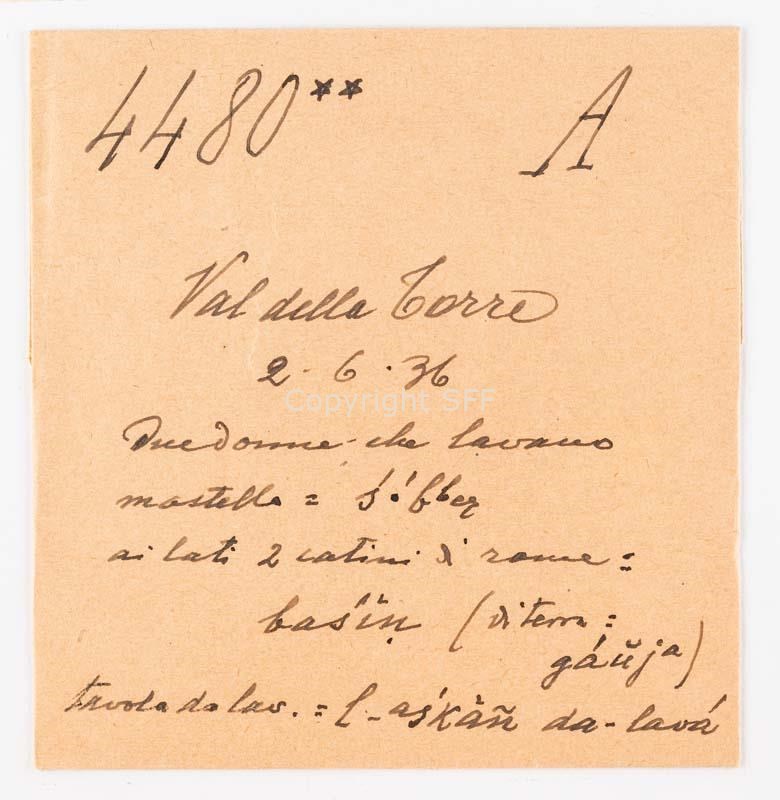 4480** A
Val della Torre
2.6.36
Copyright SFF
Due donne che lavano
mastello =
ai lati 2 catini di rame =
baśin̥ (di terra =
gáŭja)
tavola da lav. = l-aśkàñ da-lavá